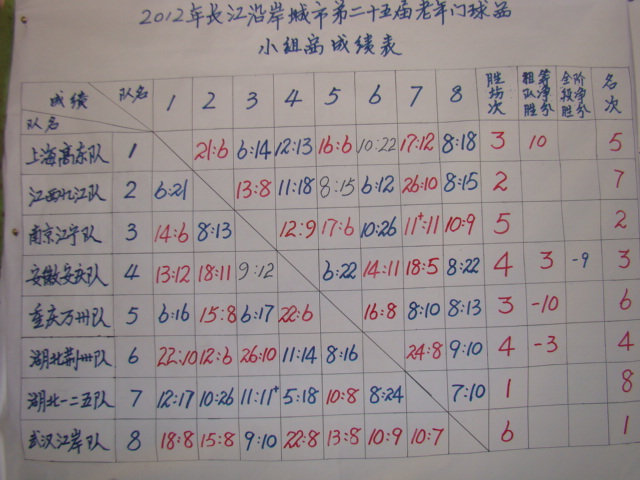 2012年长江沿岸城市第二十五届老年门球赛
小组赛成绩表
成绩 队名 1 2 3 4 5 6 7 8 胜场次 相等队净胜分 全阶段净胜分 名次
队名
上海高东队 1 21:6 6:14 12:13 16:6 10:22 17:12 8:18 3 10 5
江西九江队 2 6:21 13:8 11:18 8:15 6:12 26:10 8:15 2 7
南京江宁队 3 14:6 8:13 12:9 17:6 10:26 11+:11 10:9 5 2
安徽安庆队 4 13:12 18:11 9:12 6:22 14:11 18:5 8:22 4 3 -9 3
重庆万州队 5 6:16 15:8 6:17 22:6 16:8 8:10 8:13 3 -10 6
湖北荆州队 6 22:10 12:6 26:10 11:14 8:16 24:8 9:10 4 -3 4
湖北一二五队 7 12:17 10:26 11:11+ 5:18 10:8 8:24 7:10 1 8
武汉江岸队 8 18:8 15:8 9:10 22:8 13:8 10:9 10:7 6 1